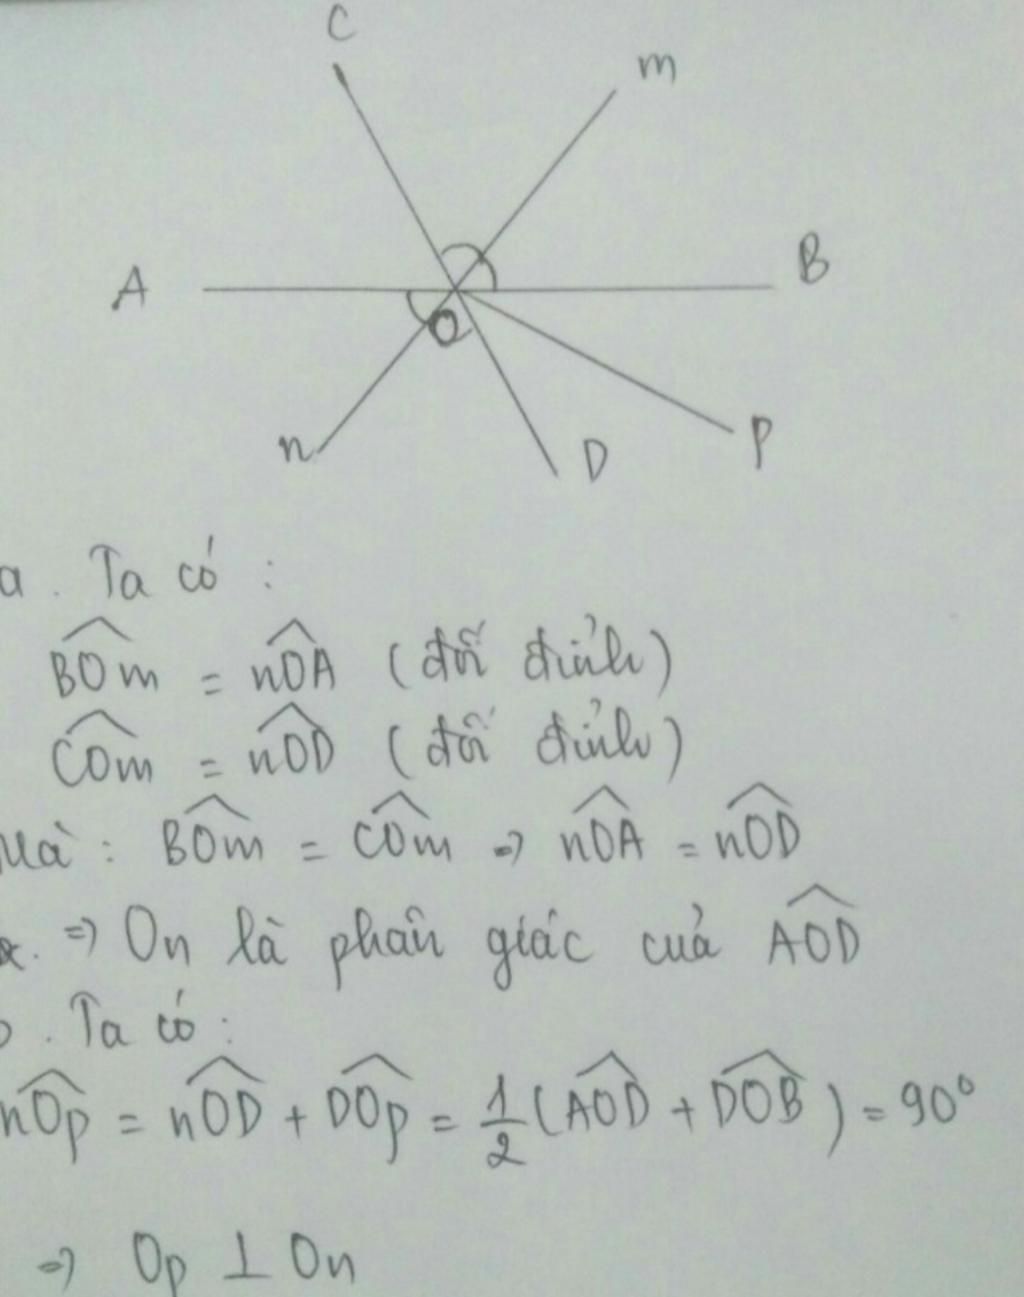 C
m
A
B
O
n
D
p
a. Ta có:
BOm = nOA (đối đỉnh)
COm = nOD (đối đỉnh)
Mà: BOm = COm => nOA = nOD
=> On là phân giác của AOD
. Ta có:
nOp = nOD + DOp = 1/2 (AOD + DOB) = 90°
=> Op ⊥ On